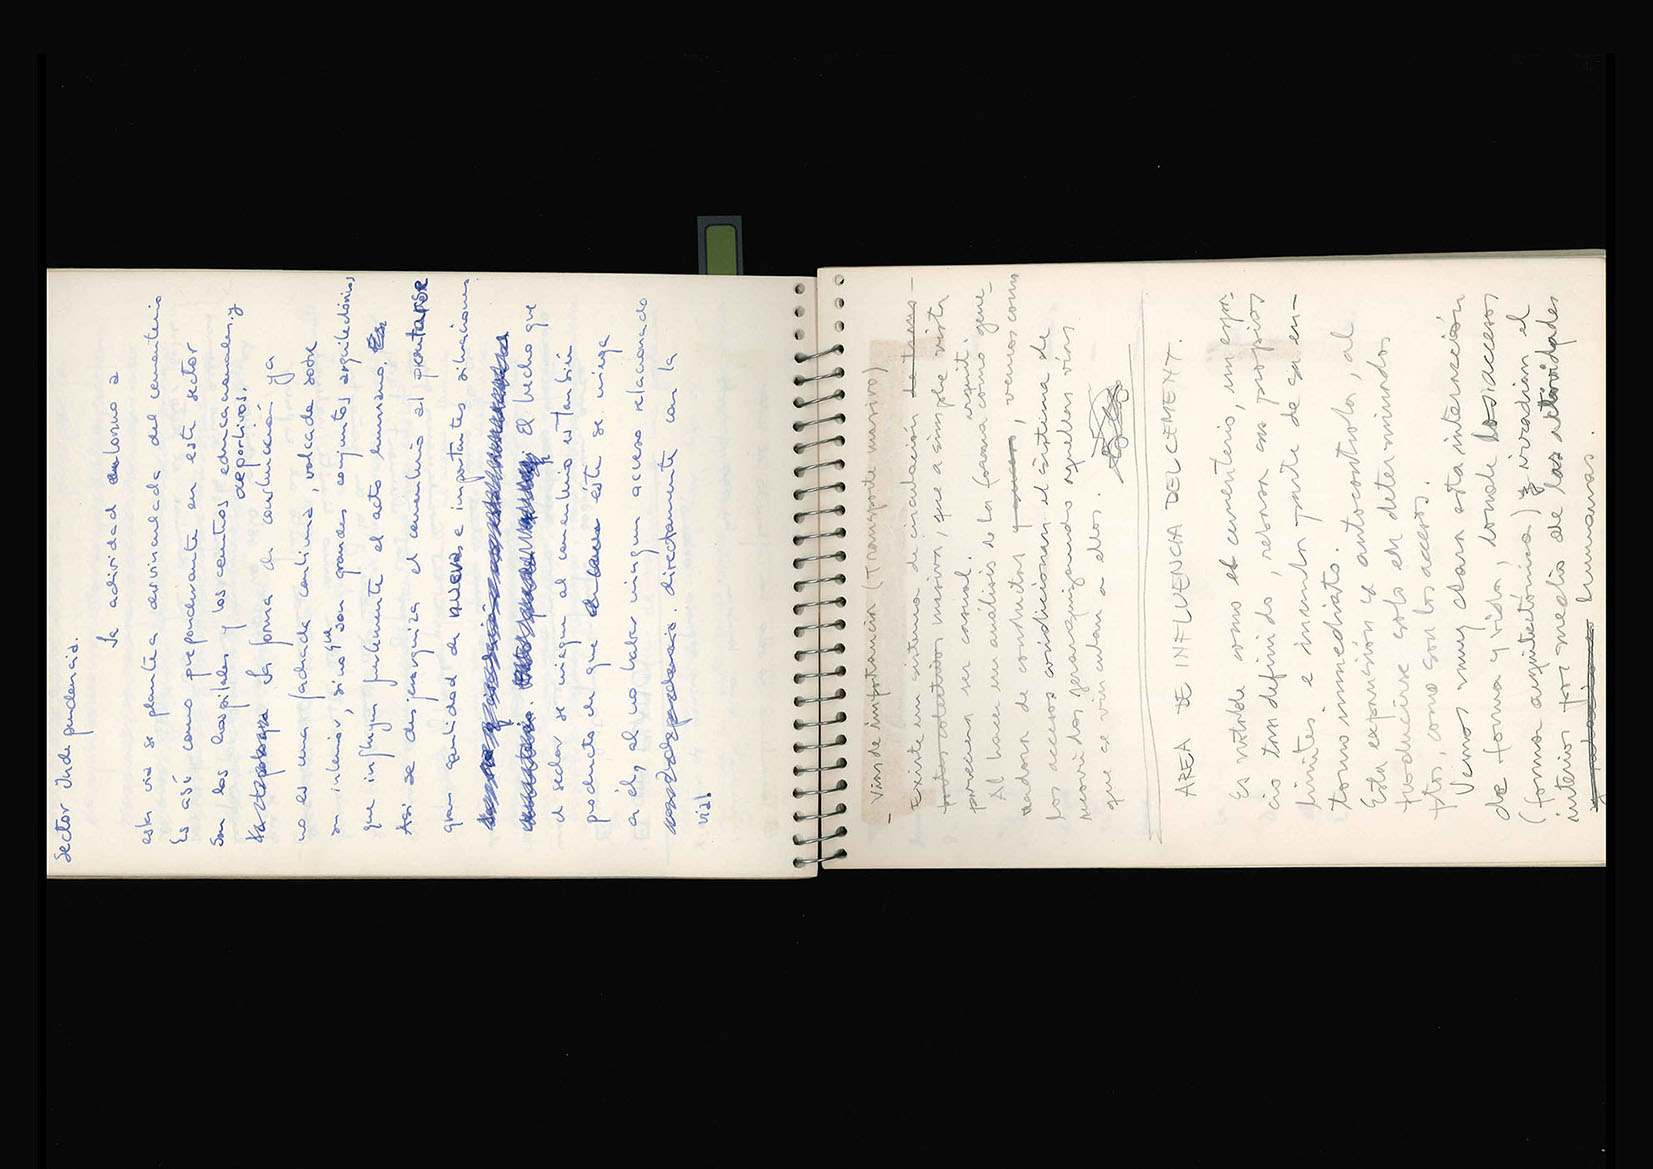 Sector Independencia.
La actividad entorno a
esta vía se plantea desvinculada del cementerio
Es así como preponderante en este sector
son los hospitales y los centros educacionales y
deportivos.
La forma de construcción ya
no es una fachada continua, volcada sobre
su interior, sino que son grandes conjuntos arquitectónicos
que influyen fuertemente el acto humano.
Así se desjerarquiza el cementerio al
gran cantidad de nuevas e importantes situaciones
El hecho que
el sector se niegue al cementerio es también
producto de que éste se niega
a él, al no haber ningún acceso relacionado
directamente con la
vía.
- Vías de importancia (Transporte masivo)
Existe un sistema de circulación
masiva, que a simple vista
parecen ser casual.
Al hacer un análisis de la forma arquit. como gene-
radora de conductas, vemos como
los accesos condicionan el sistema de
recorridos, jerarquizando aquellas vías
que se vinculan a ellos.
AREA DE INFLUENCIA DEL CEMENT.
Es notable como el cementerio, un espa-
cio tan definido, rebasa sus propios
límites e incumbe parte de su en-
torno inmediato.
Esta expansión se autocontrola, al
producirse solo en determinados
ptos, como son los accesos.
Vemos muy clara esta interacción
de forma y vida, donde los accesos
(forma arquitectónica) irradian el
interior por medio de las actividades
humanas.